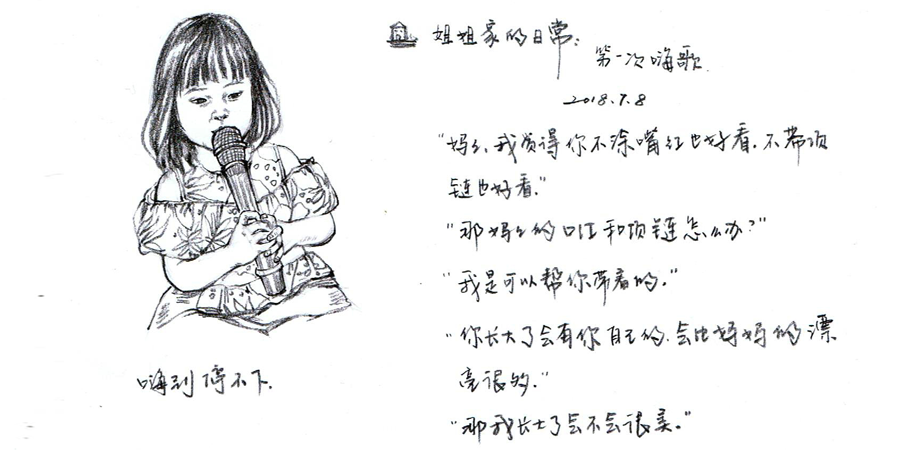 姐姐家的日常:
第一次嗨歌.
2018.7.8
"妈妈,我觉得你不涂嘴红也好看.不带项
链也好看."
"那妈妈的口红和项链怎么办?"
"我是可以帮你带着的."
"你长大了会有你自己的.会比妈妈的漂
亮很多."
"那我长大了会不会很美."
嗨到停不下.